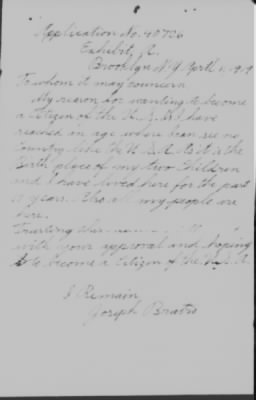 Application No. 40730
Exhibit, A.
Brooklyn N.Y. April 1919
To whom it may concern
My reason for wanting to become
a Citizen of the U.S.A. I have
reached an age where I can see no
Country like the U.S.A. As it is the
Birth place of my two Children
and I have lived here for the past
years. Also all my people are
here.
Trusting this
with your approval and hoping
to become a Citizen of the U.S.A.
I Remain
Joseph